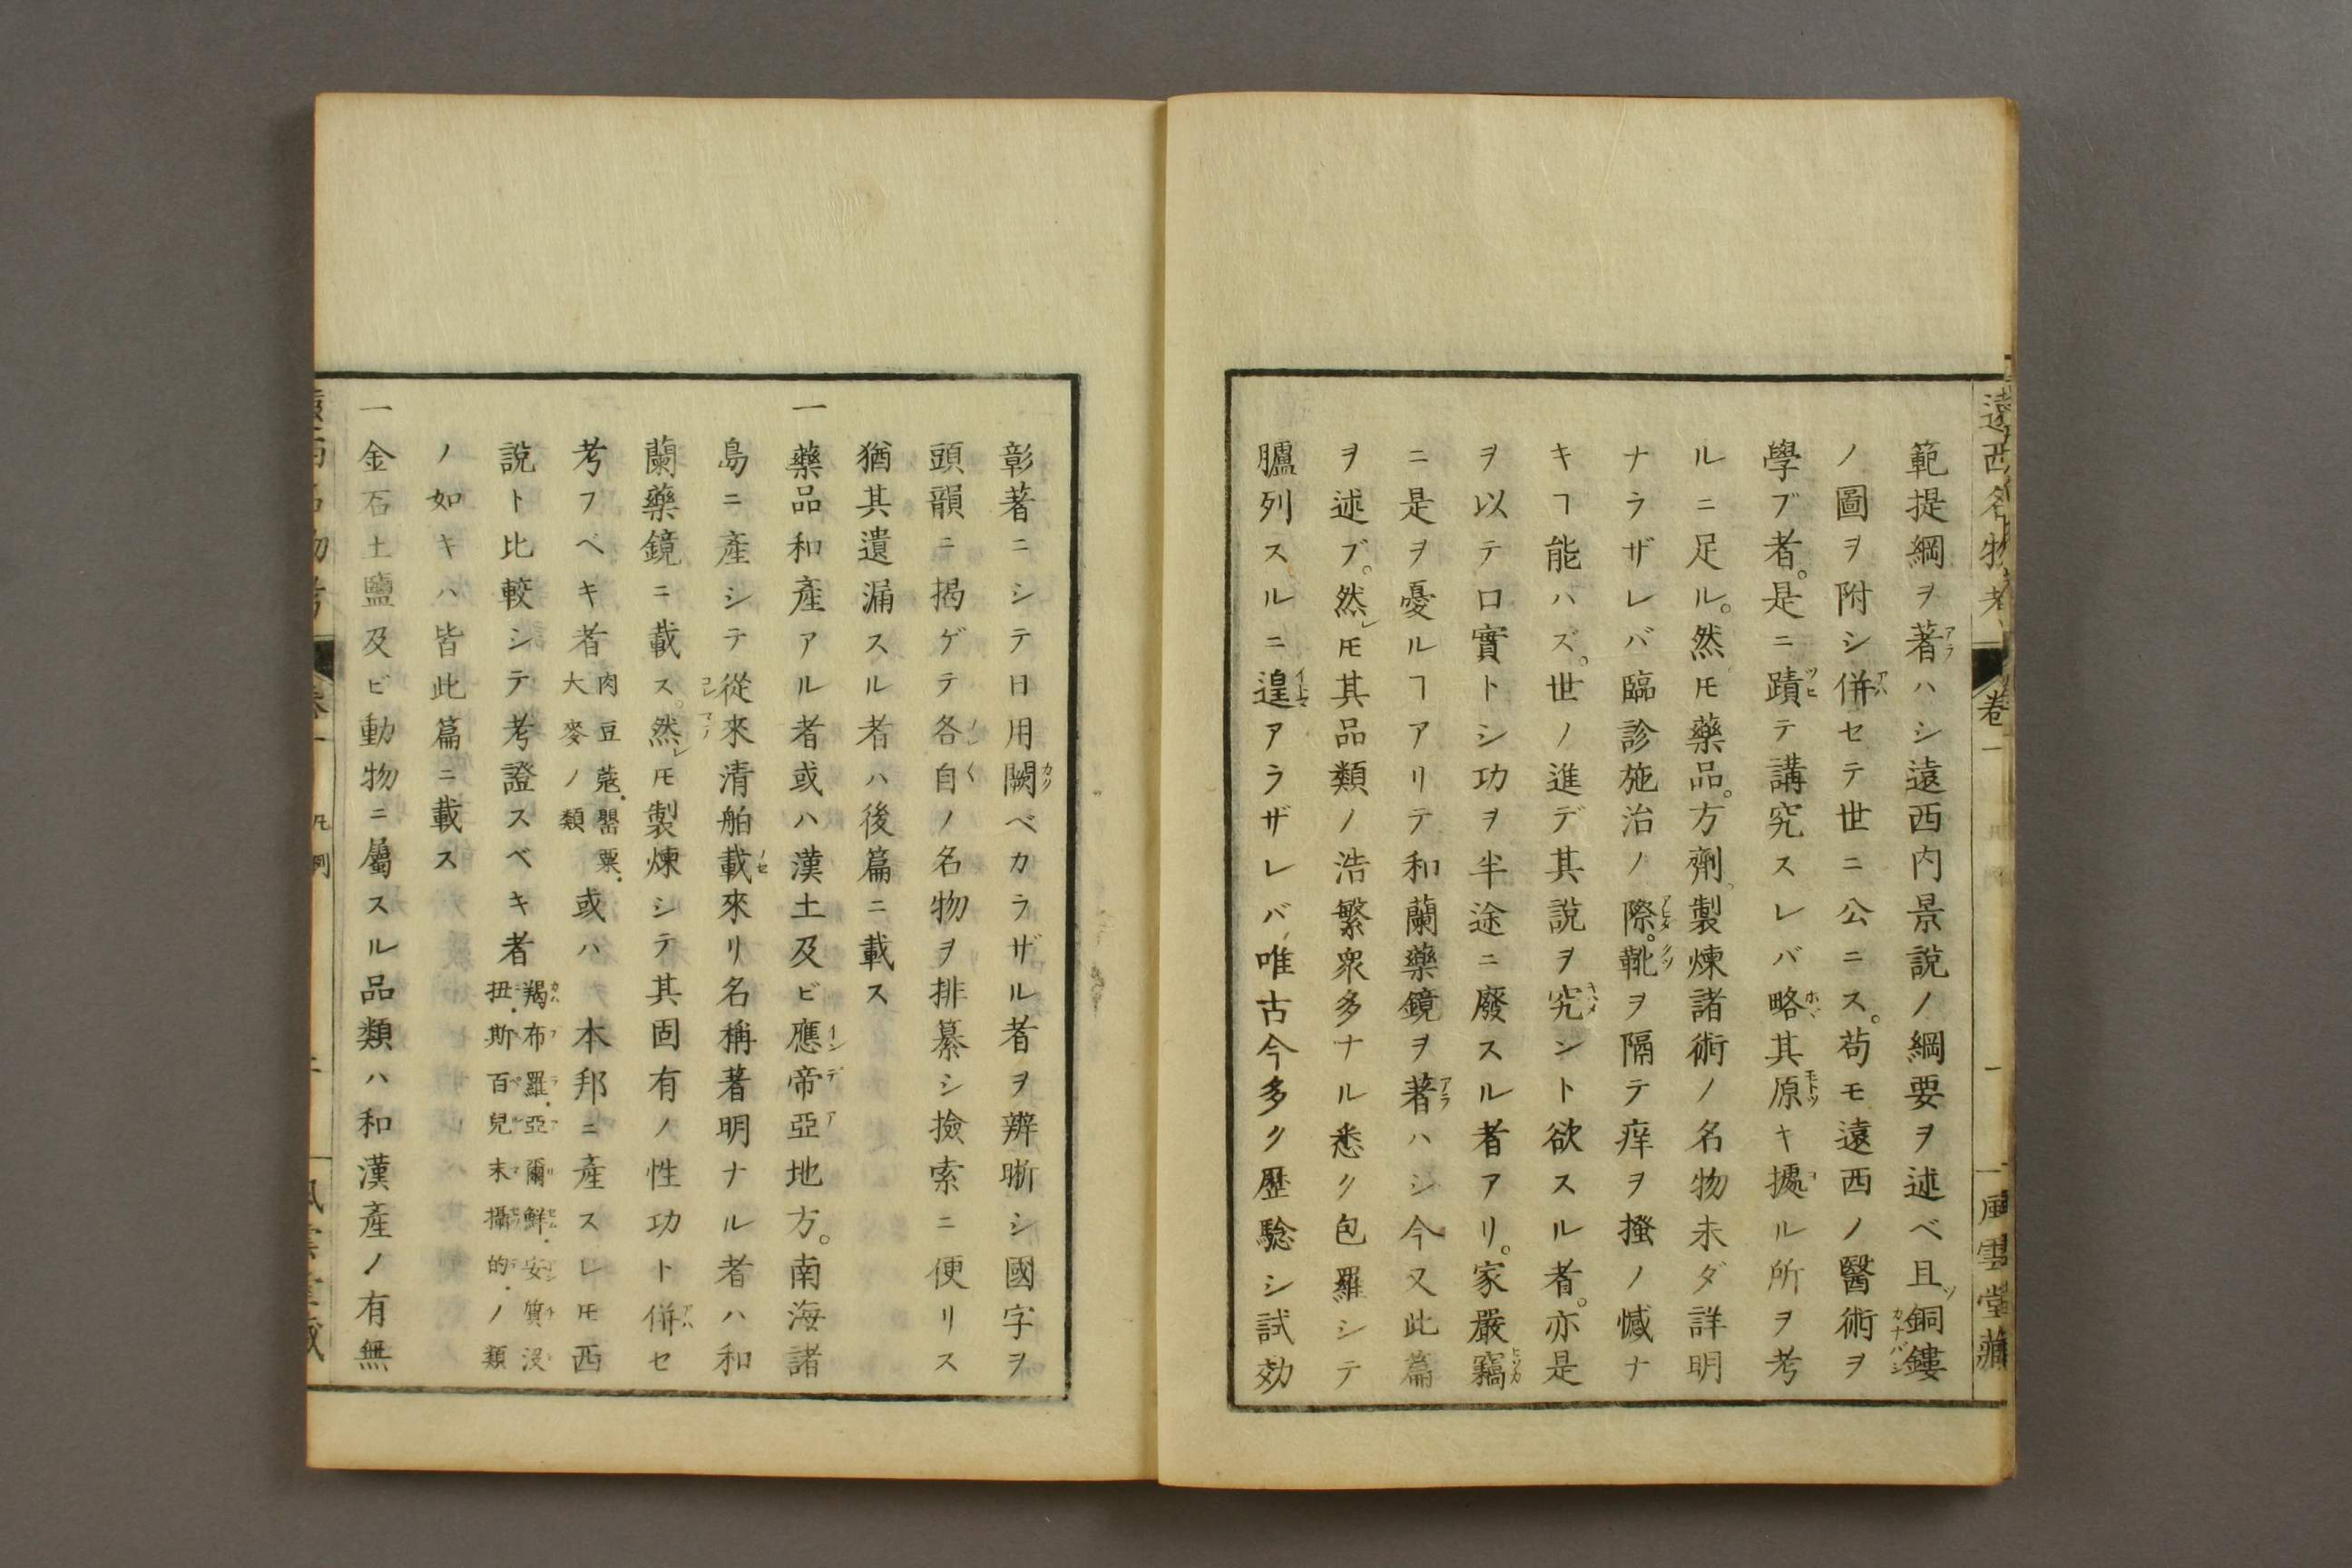 遠西名物考 卷一 風雲堂藏
範提綱ヲ著ハシ遠西内景説ノ綱要ヲ述ベ且銅鏤
ノ圖ヲ附シ併セテ世ニ公ニス。苟モ遠西ノ醫術ヲ
學ブ者。是ニ蹟テ講究スレバ略其原キ據ル所ヲ考
ルニ足ル。然㆑𪜈藥品。方劑。製煉諸術ノ名物未ダ詳明
ナラザレバ臨診施治ノ際。靴ヲ隔テ痒ヲ搔ノ憾ナ
キヿ能ハズ。世ノ進デ其說ヲ究ント欲スル者。亦是
ヲ以テ口實トシ功ヲ半途ニ廢スル者アリ。家嚴竊
ニ是ヲ憂ルヿアリテ和蘭藥鏡ヲ著ハシ今又此篇
ヲ述ブ。然㆑𪜈其品類ノ浩繁衆多ナル悉ク包羅シテ
臚列スルニ遑アラザレバ唯古今多ク歴騐シ試効
彰著ニシテ日用闕ベカラザル者ヲ辨晰シ國字ヲ
頭韻ニ揭ゲテ各自ノ名物ヲ排纂シ撿索ニ便リス
猶其遺漏スル者ハ後篇ニ載ス
一藥品和產アル者或ハ漢土及ビ應帝亞地方。南海諸
島ニ產シテ從來清舶載來リ名稱著明ナル者ハ和
蘭藥鏡ニ載ス。然㆑𪜈製煉シテ其固有ノ性功ト併セ
考フベキ者肉豆蔻.罌粟.大麥ノ類或ハ 本邦ニ產スレ𪜈西
說ト比較シテ考證スベキ者羯布羅.亞爾鮮.安質没扭.斯百兒末攝的.ノ類
ノ如キハ皆此篇ニ載ス
一金石土鹽及ビ動物ニ屬スル品類ハ和漢產ノ有無